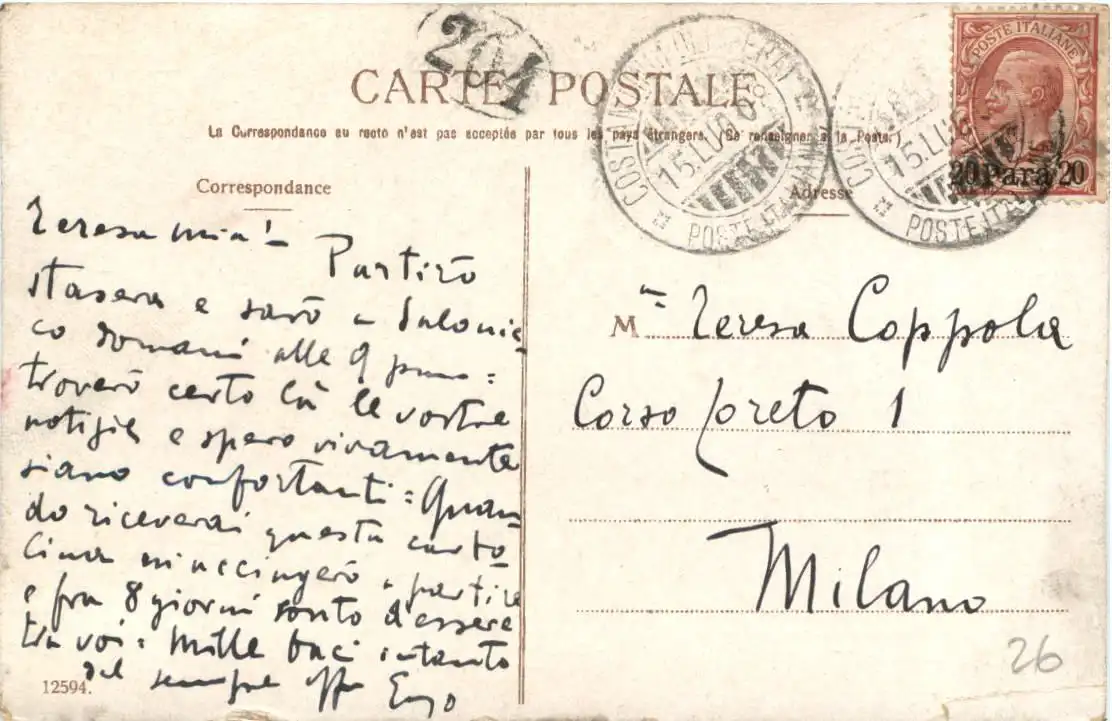 204
CARTE POSTALE
POSTE ITALIANE
20 Para 20
15.LU
POSTE ITALIANE
15.LU
POSTE ITA
La Correspondance au recto n'est pas acceptée par tous les pays étrangers. (Se renseigner à la Poste.)
Correspondance
Teresa mia! -
Partirò
stasera e sarò a Salonic=
co domani alle 9 pom =
troverò certo là le vostre
notizie e spero vivamente
siano confortanti = Quan=
do riceverai questa carto=
lina mi accingerò a partire
e fra 8 giorni conto d'essere
tra voi = Mille baci intanto
dal sempre aff Enzo
12594.
Adresse
Mme Teresa Coppola
Corso Loreto 1
Milano
26